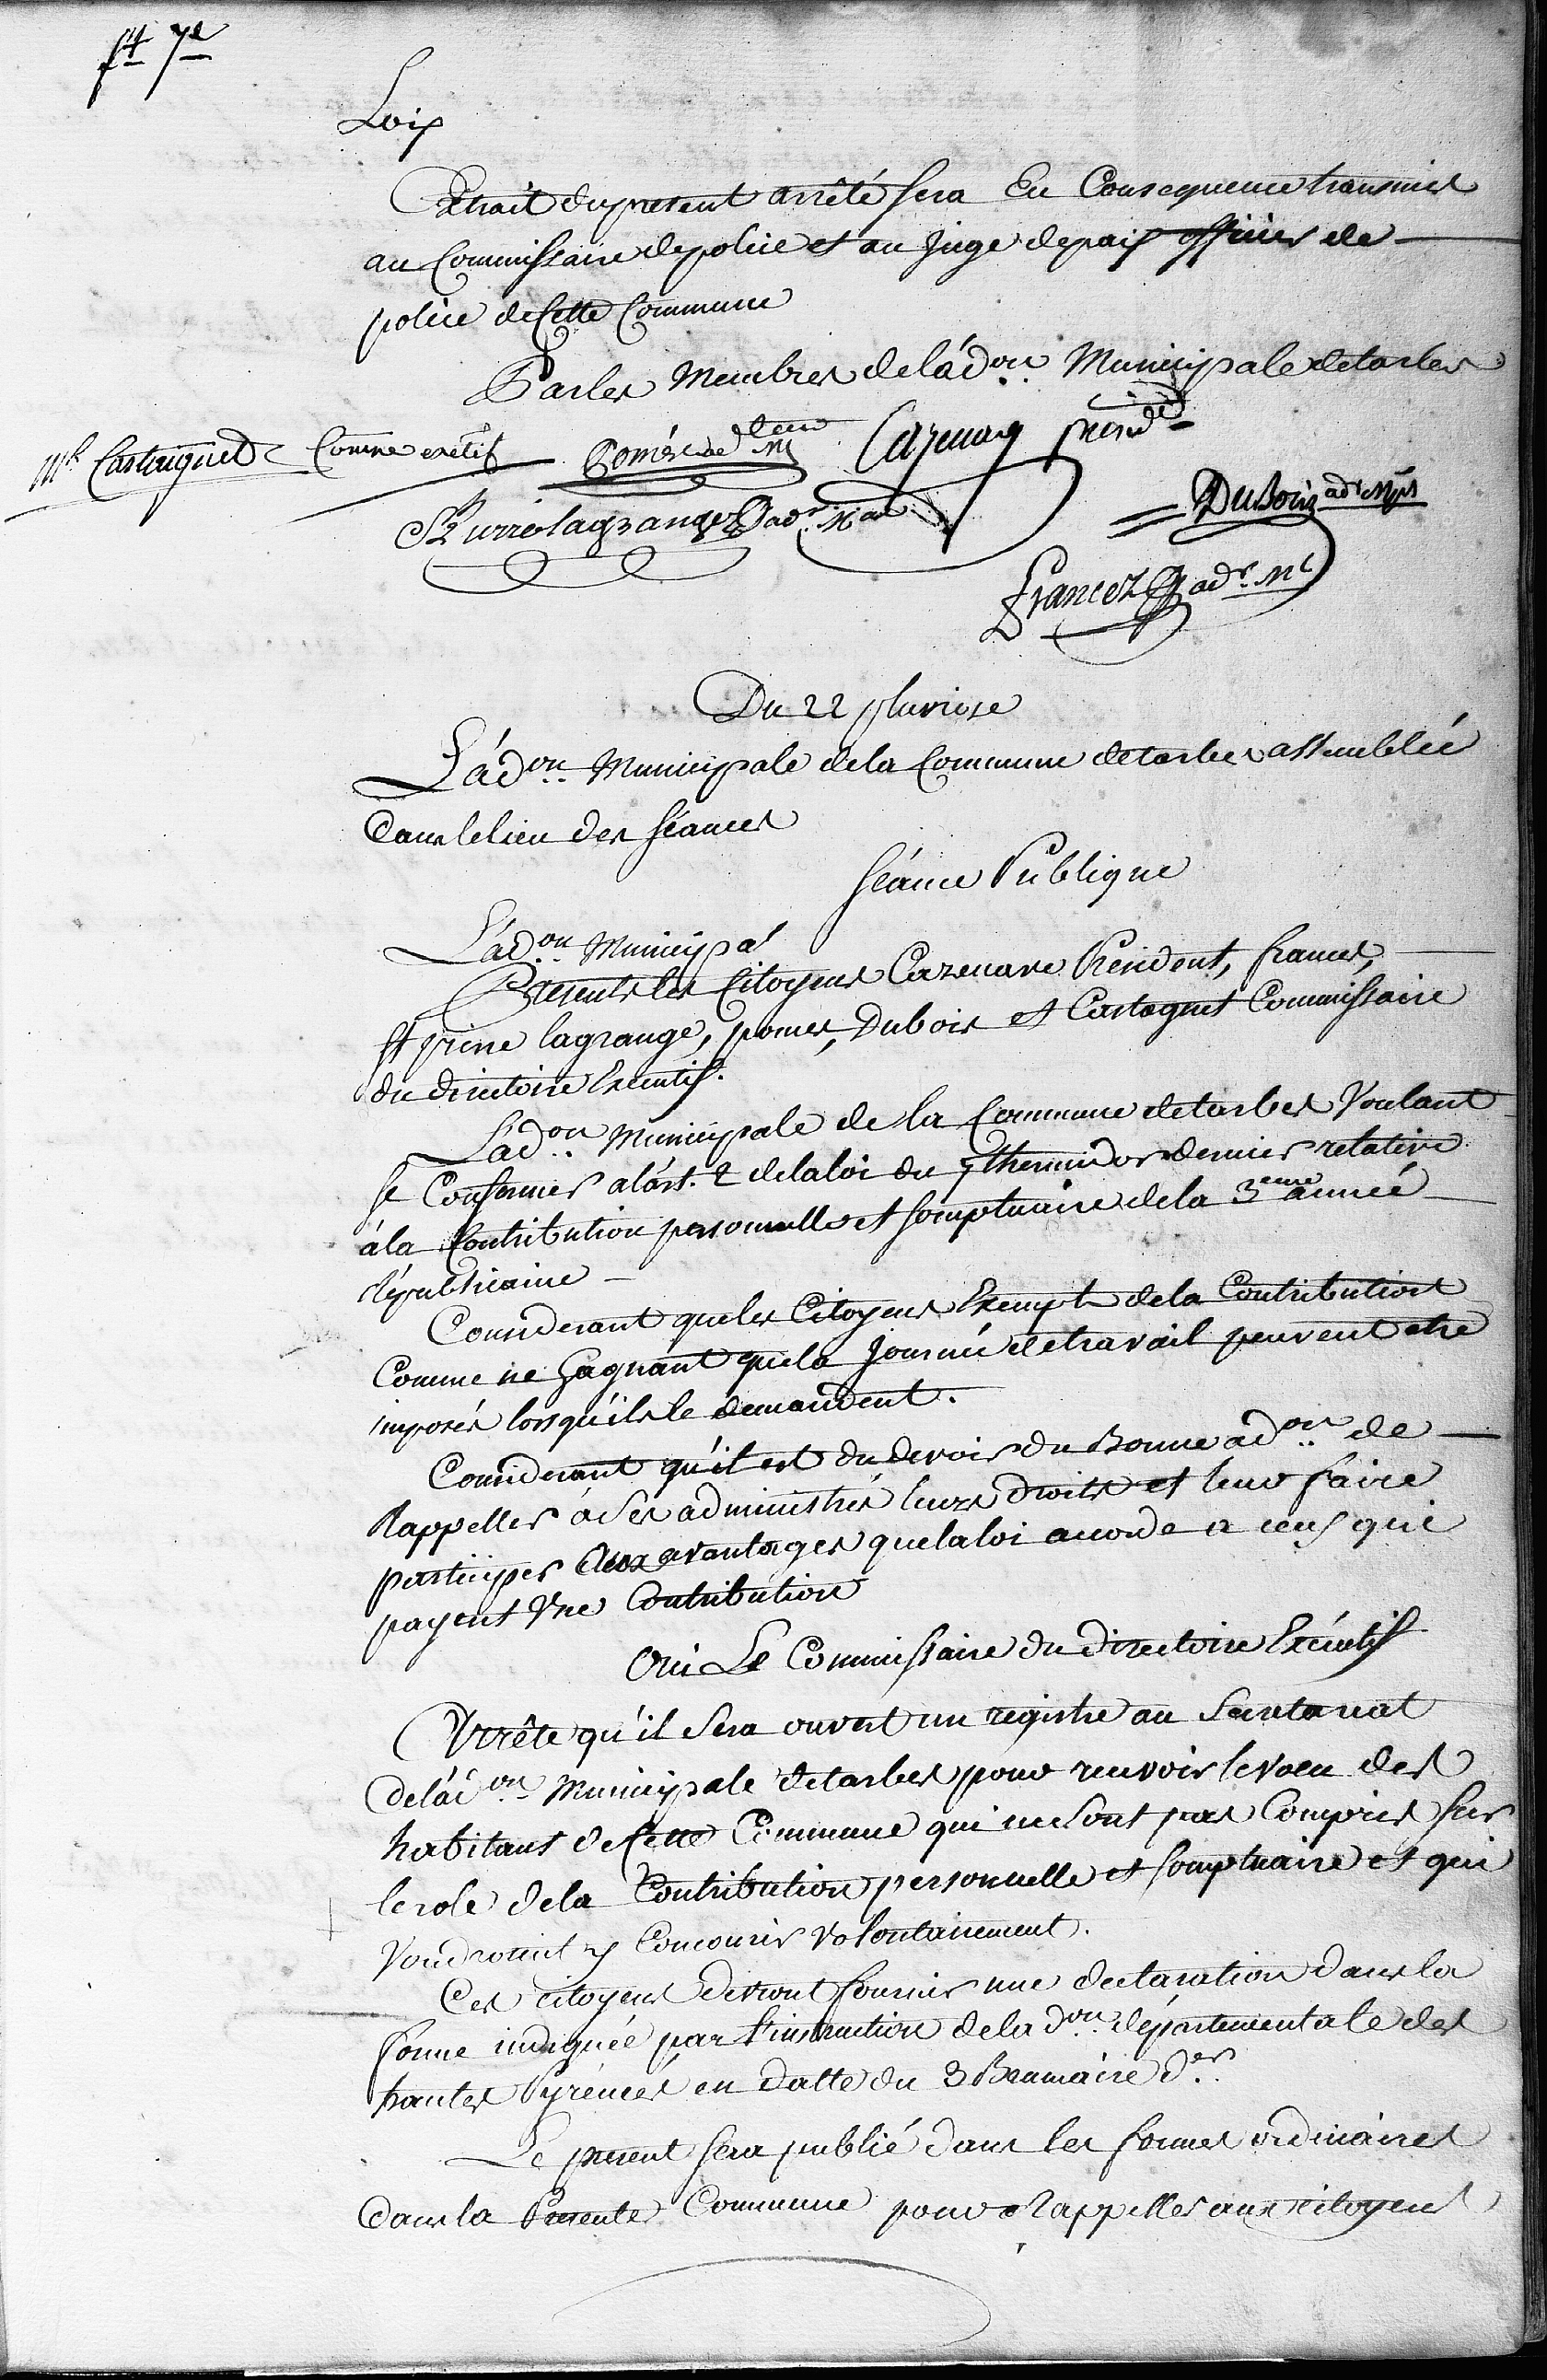 ft 7e
Loix
Extrait du present arrêté sera En Consequence transmis
au Commissaire de police et au juge de paix officier de
police de Cette Commune
Par les Membres de l'ádon Municipale de tarbes
Castagnet Comre exétif Pomés ad M Cazenave présidt
St Pierre lagrange adr Mal DuBois adr Mpl
Francez adr Ml
Du 22 pluviose
L'ádon Municipale de la Commune de tarbes assemblée
Dans le lieu des séances
séance Publique
L'adon Municipal
Présents les Citoyens Cazenave Président, frances,
st prine lagrange, pomes, Dubois et Castagnet Commissaire
du directoire Exécutif.
L'adon Municipale de la Commune de tarbes Voulant
se Conformer a l'árt. 2 de la loi du 7 thermidor dernier relative
á la Contribution personnelle et somptuaire de la 3eme année
républicaine
Considerant que les Citoyens Exempts de la Contribution
Comme ne Gagnant que la journée de travail peuvent etre
imposés lorsqu'ils le demandent.
Considerant qu'il est du devoir du Bonne adon de
Rappeller á ses administrés leurs droits et leur faire
participer Aux avantages que la loi accorde a ceux qui
payent Une Contribution
Oui Le Commissaire du directoire Exécutif
Arrête qu'il sera ouvert un registre au Secretariat
de l'ádon Municipale de tarbes pour recevoir le voeu des
habitans de Cette Commune qui ne sont pas Compris sur
le role de la Contribution personnelle et somptuaire et qui
Voudroient y Concourir Volontairement.
Ces citoyens devront fournir une declaration dans la
forme indiquée par l'instruction de la don départementale des
hautes Pyrénées en datte du 3 Brumaire der
Le present sera publié dans les formes ordinaires
Dans la Presente Commune pour Rappeller aux citoyens